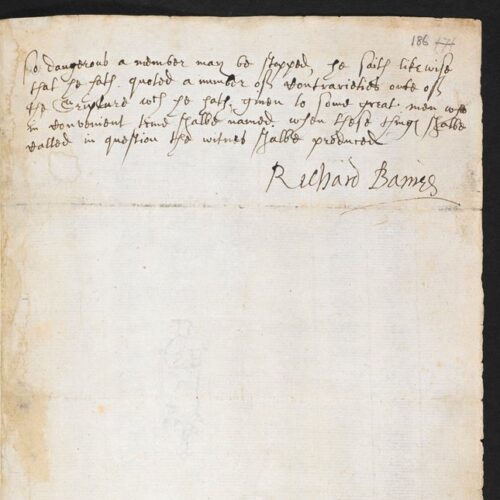 186 
so dangerous a member may be stopped, he saith likewise
that he hath quoted a number off Contrarieties oute off
the Scripture wch he hath giuen to some great men who
in Convenient time shalbe named. when these things shalbe
Called in question the witnes shalbe produced.
Richard Baines